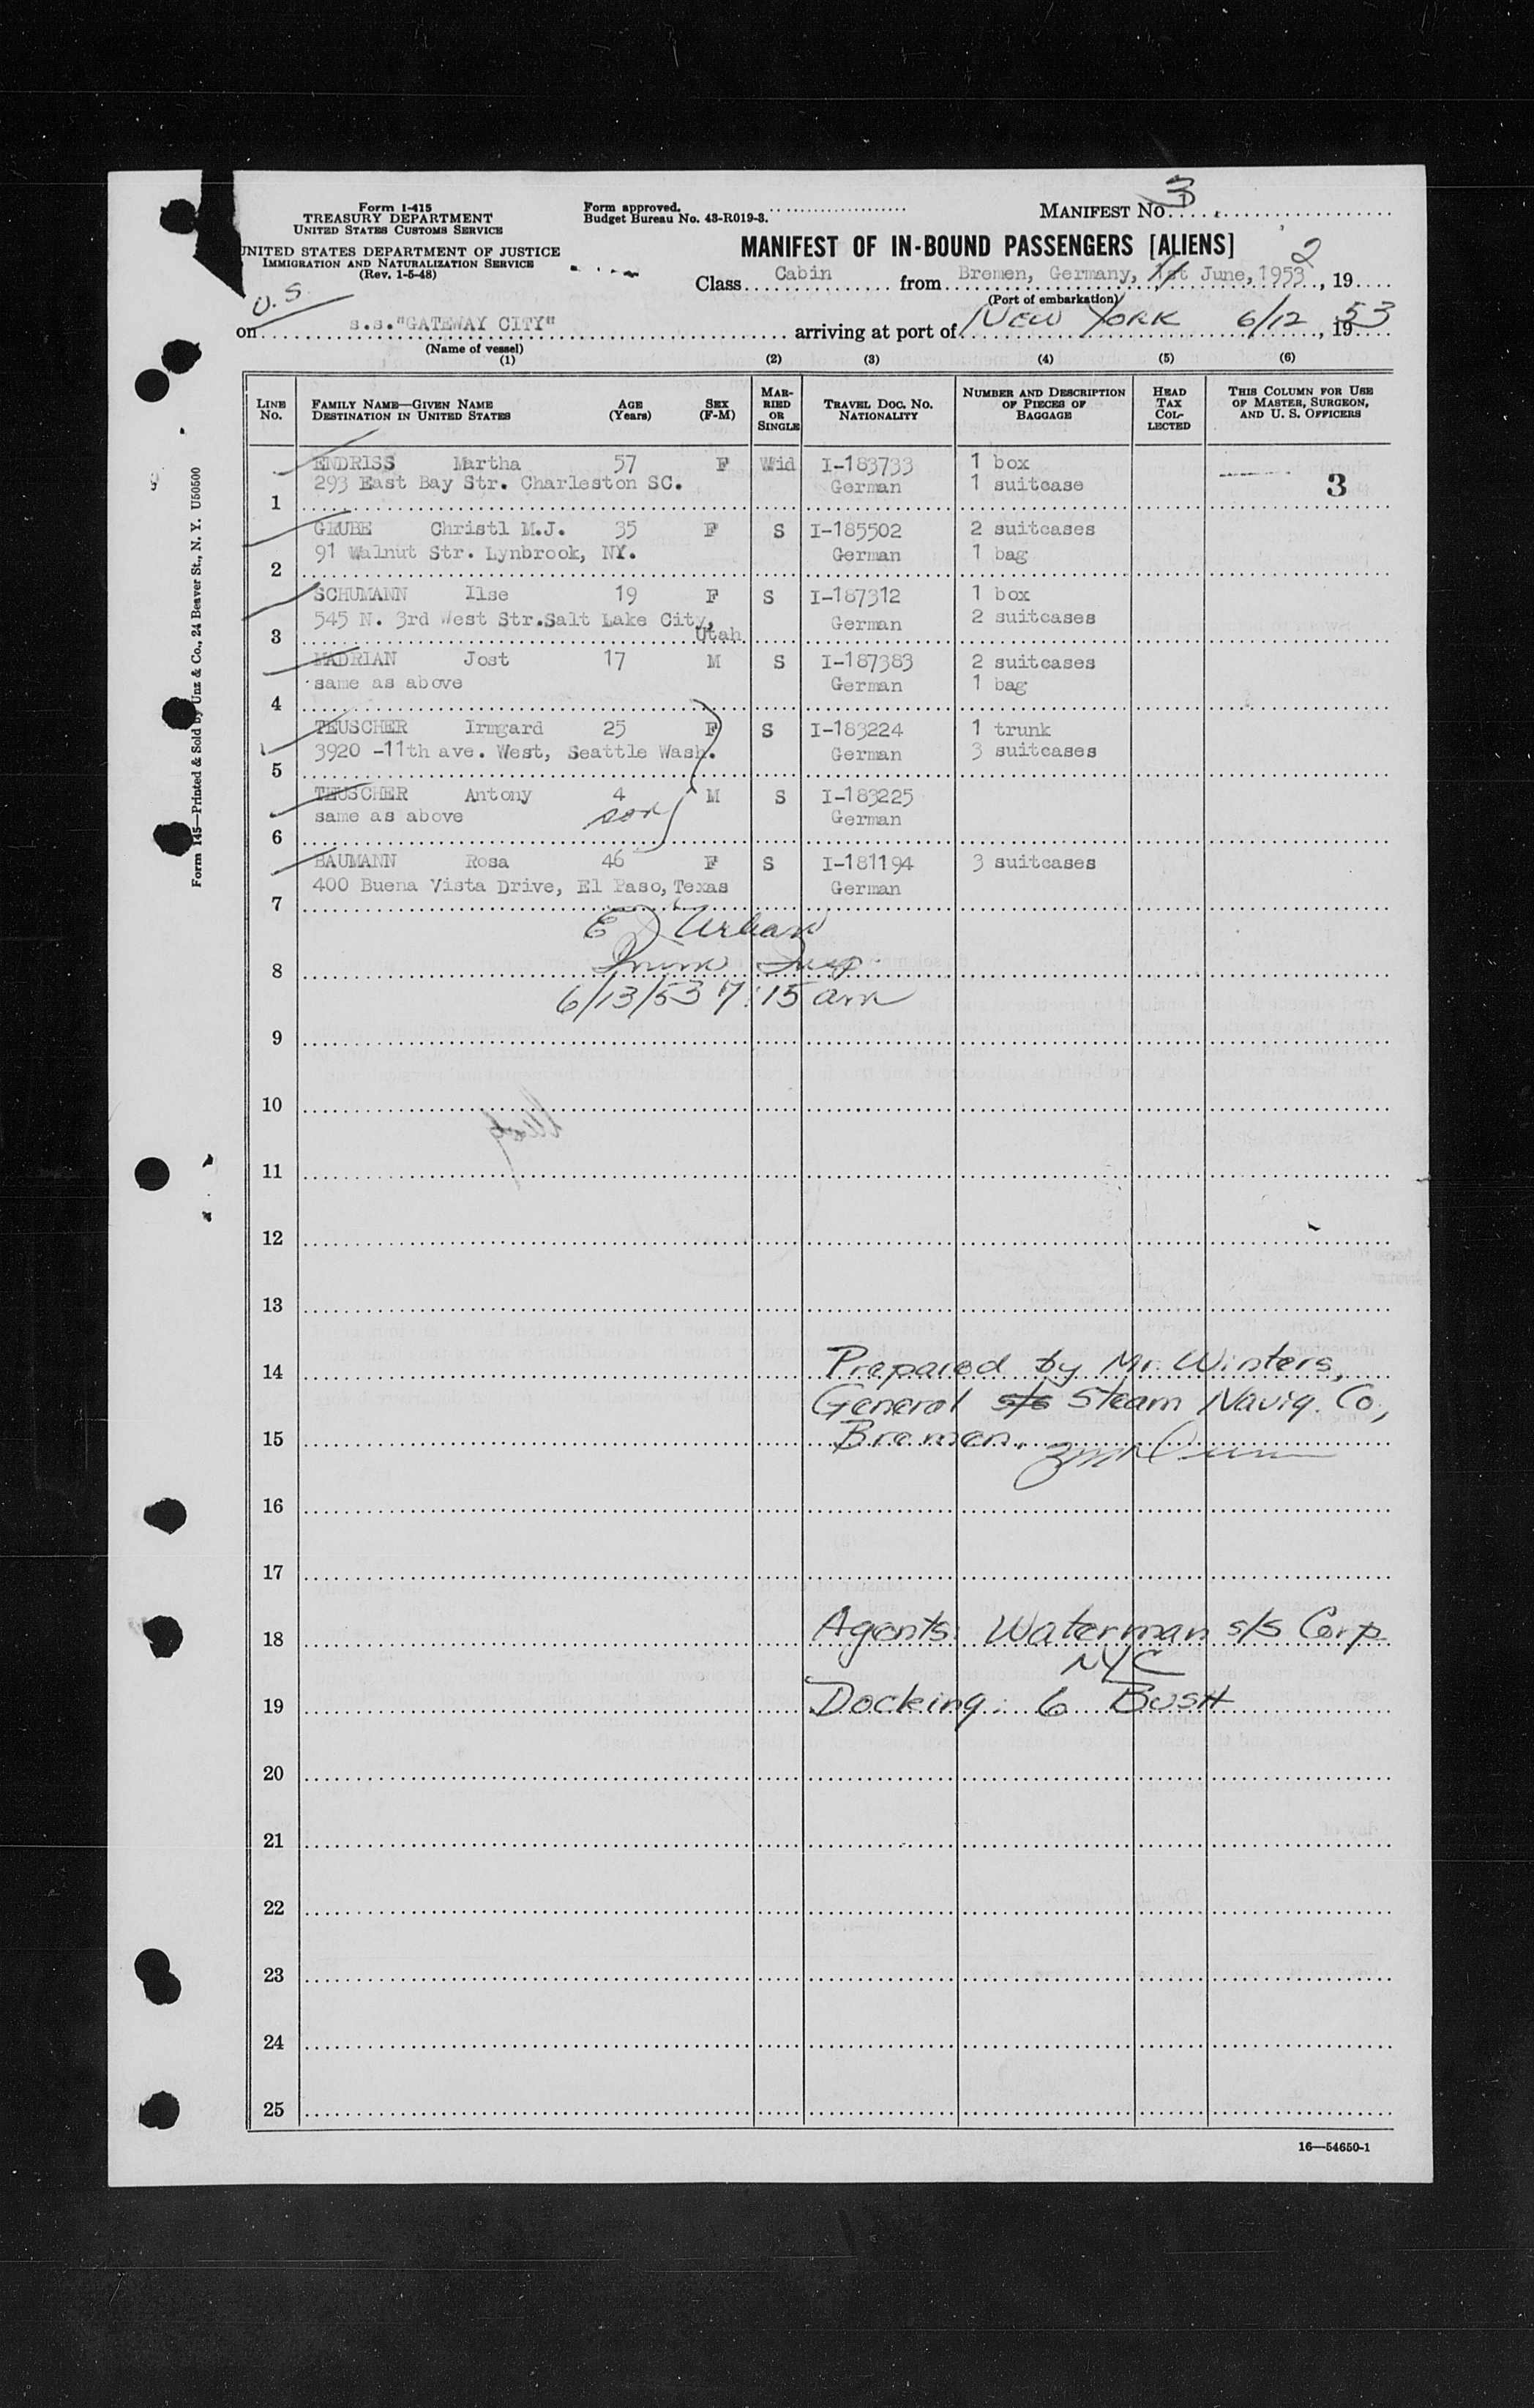 Form I-415
TREASURY DEPARTMENT
UNITED STATES CUSTOMS SERVICE
UNITED STATES DEPARTMENT OF JUSTICE
IMMIGRATION AND NATURALIZATION SERVICE
(Rev. 1-5-48)
Form approved.
Budget Bureau No. 43-R019-3.
MANIFEST NO. 3
MANIFEST OF IN-BOUND PASSENGERS [ALIENS]
2
Class Cabin from Bremen, Germany, 1st June, 1953, 19
(Port of embarkation)
U.S.
on s.s."GATEWAY CITY" arriving at port of NEW YORK 6/12, 1953
(Name of vessel)
(1) (2) (3) (4) (5) (6)
LINE No. FAMILY NAME—GIVEN NAME DESTINATION IN UNITED STATES AGE (Years) SEX (F-M) MARRIED OR SINGLE TRAVEL DOC. NO. NATIONALITY NUMBER AND DESCRIPTION OF PIECES OF BAGGAGE HEAD TAX COLLECTED THIS COLUMN FOR USE OF MASTER, SURGEON, AND U. S. OFFICERS
ENDRISS Martha 57 F Wid I-183733 1 box
293 East Bay Str. Charleston SC. German 1 suitcase 3
1
GRUBE Christl M.J. 35 F S I-185502 2 suitcases
91 Walnut Str. Lynbrook, NY. German 1 bag
2
SCHUMANN Ilse 19 F S I-187312 1 box
545 N. 3rd West Str.Salt Lake City, German 2 suitcases
3 Utah
MADRIAN Jost 17 M S I-187383 2 suitcases
same as above German 1 bag
4
TEUSCHER Irmgard 25 F S I-183224 1 trunk
3920 -11th ave. West, Seattle Wash. German 3 suitcases
5
TEUSCHER Antony 4 M S I-183225
same as above son German
6
BAUMANN Rosa 46 F S I-181194 3 suitcases
400 Buena Vista Drive, El Paso, Texas German
7
E Urban
8
Immn Insp
6/13/53 7:15 am
9
10
11
12
13
14 Prepared by Mr. Winters,
General s/s Steam Navig. Co,
15 Bremen.
16
17
18 Agents: Waterman s/s Corp
NYC
19 Docking: 6 BUSH
20
21
22
23
24
25
16—54650-1
Form 145—Printed & Sold by Unz & Co., 24 Beaver St., N. Y. U50500